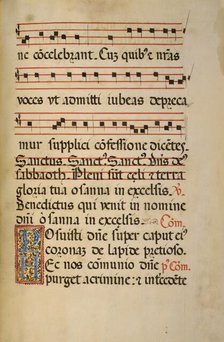 ne cōcelebrant. Cuȝ quibꝰ ⁊ nr̄as
voces vt admitti iubeas depreca
mur supplici cōfessione dicētes
Sanctus. Sanctꝰ Sanctꝰ. Dn̄s deꝰ
sabbaoth. Pleni sūt celi ⁊ terra
gloria tua osanna in excelsis. ℟.
Benedictus qui venit in nomine
dn̄i osanna in excelsis. Cōm.
Posuisti dn̄e super caput eiꝰ
coronaȝ de lapide pretioso.
Hec nos communio dn̄e pꝰ Cōm.
purget a crimine: ⁊ intercedēte